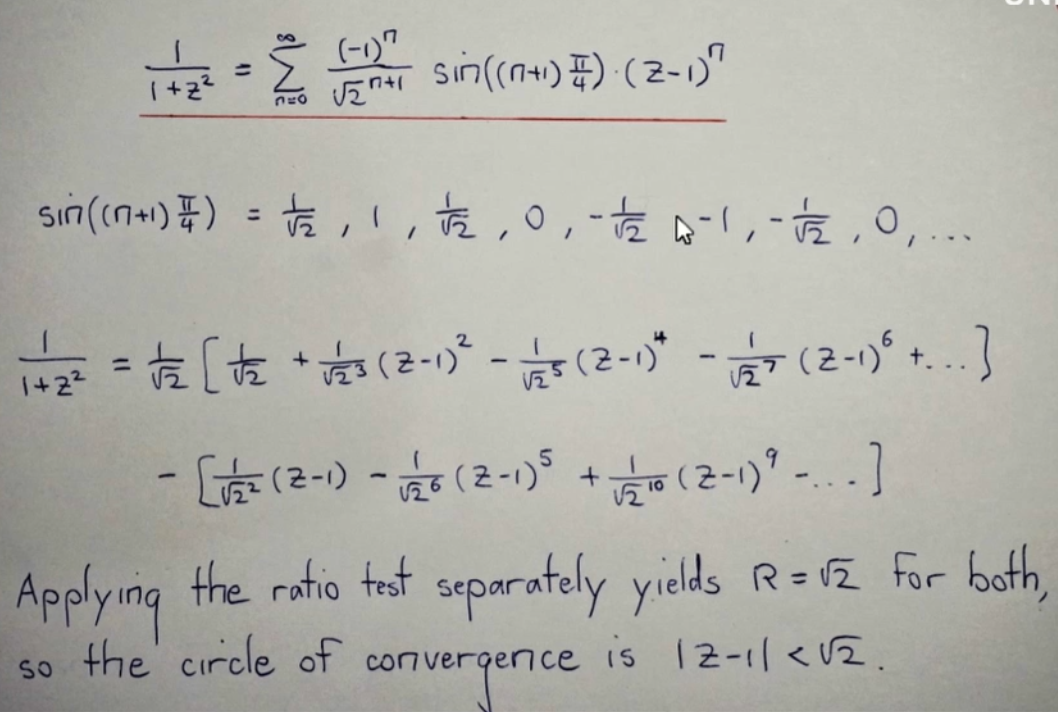 1/(1+z²) = ∑_{n=0}^{∞} (-1)ⁿ/√2ⁿ⁺¹ sin((n+1) π/4) · (z-1)ⁿ
sin((n+1) π/4) = 1/√2 , 1 , 1/√2 , 0 , -1/√2 -1 , -1/√2 , 0 , ...
1/(1+z²) = 1/√2 [ 1/√2 + 1/√2³ (z-1)² - 1/√2⁵ (z-1)⁴ - 1/√2⁷ (z-1)⁶ + ... ]
- [ 1/√2² (z-1) - 1/√2⁶ (z-1)⁵ + 1/√2¹⁰ (z-1)⁹ - ... ]
Applying the ratio test separately yields R = √2 for both,
so the circle of convergence is |z-1| < √2 .